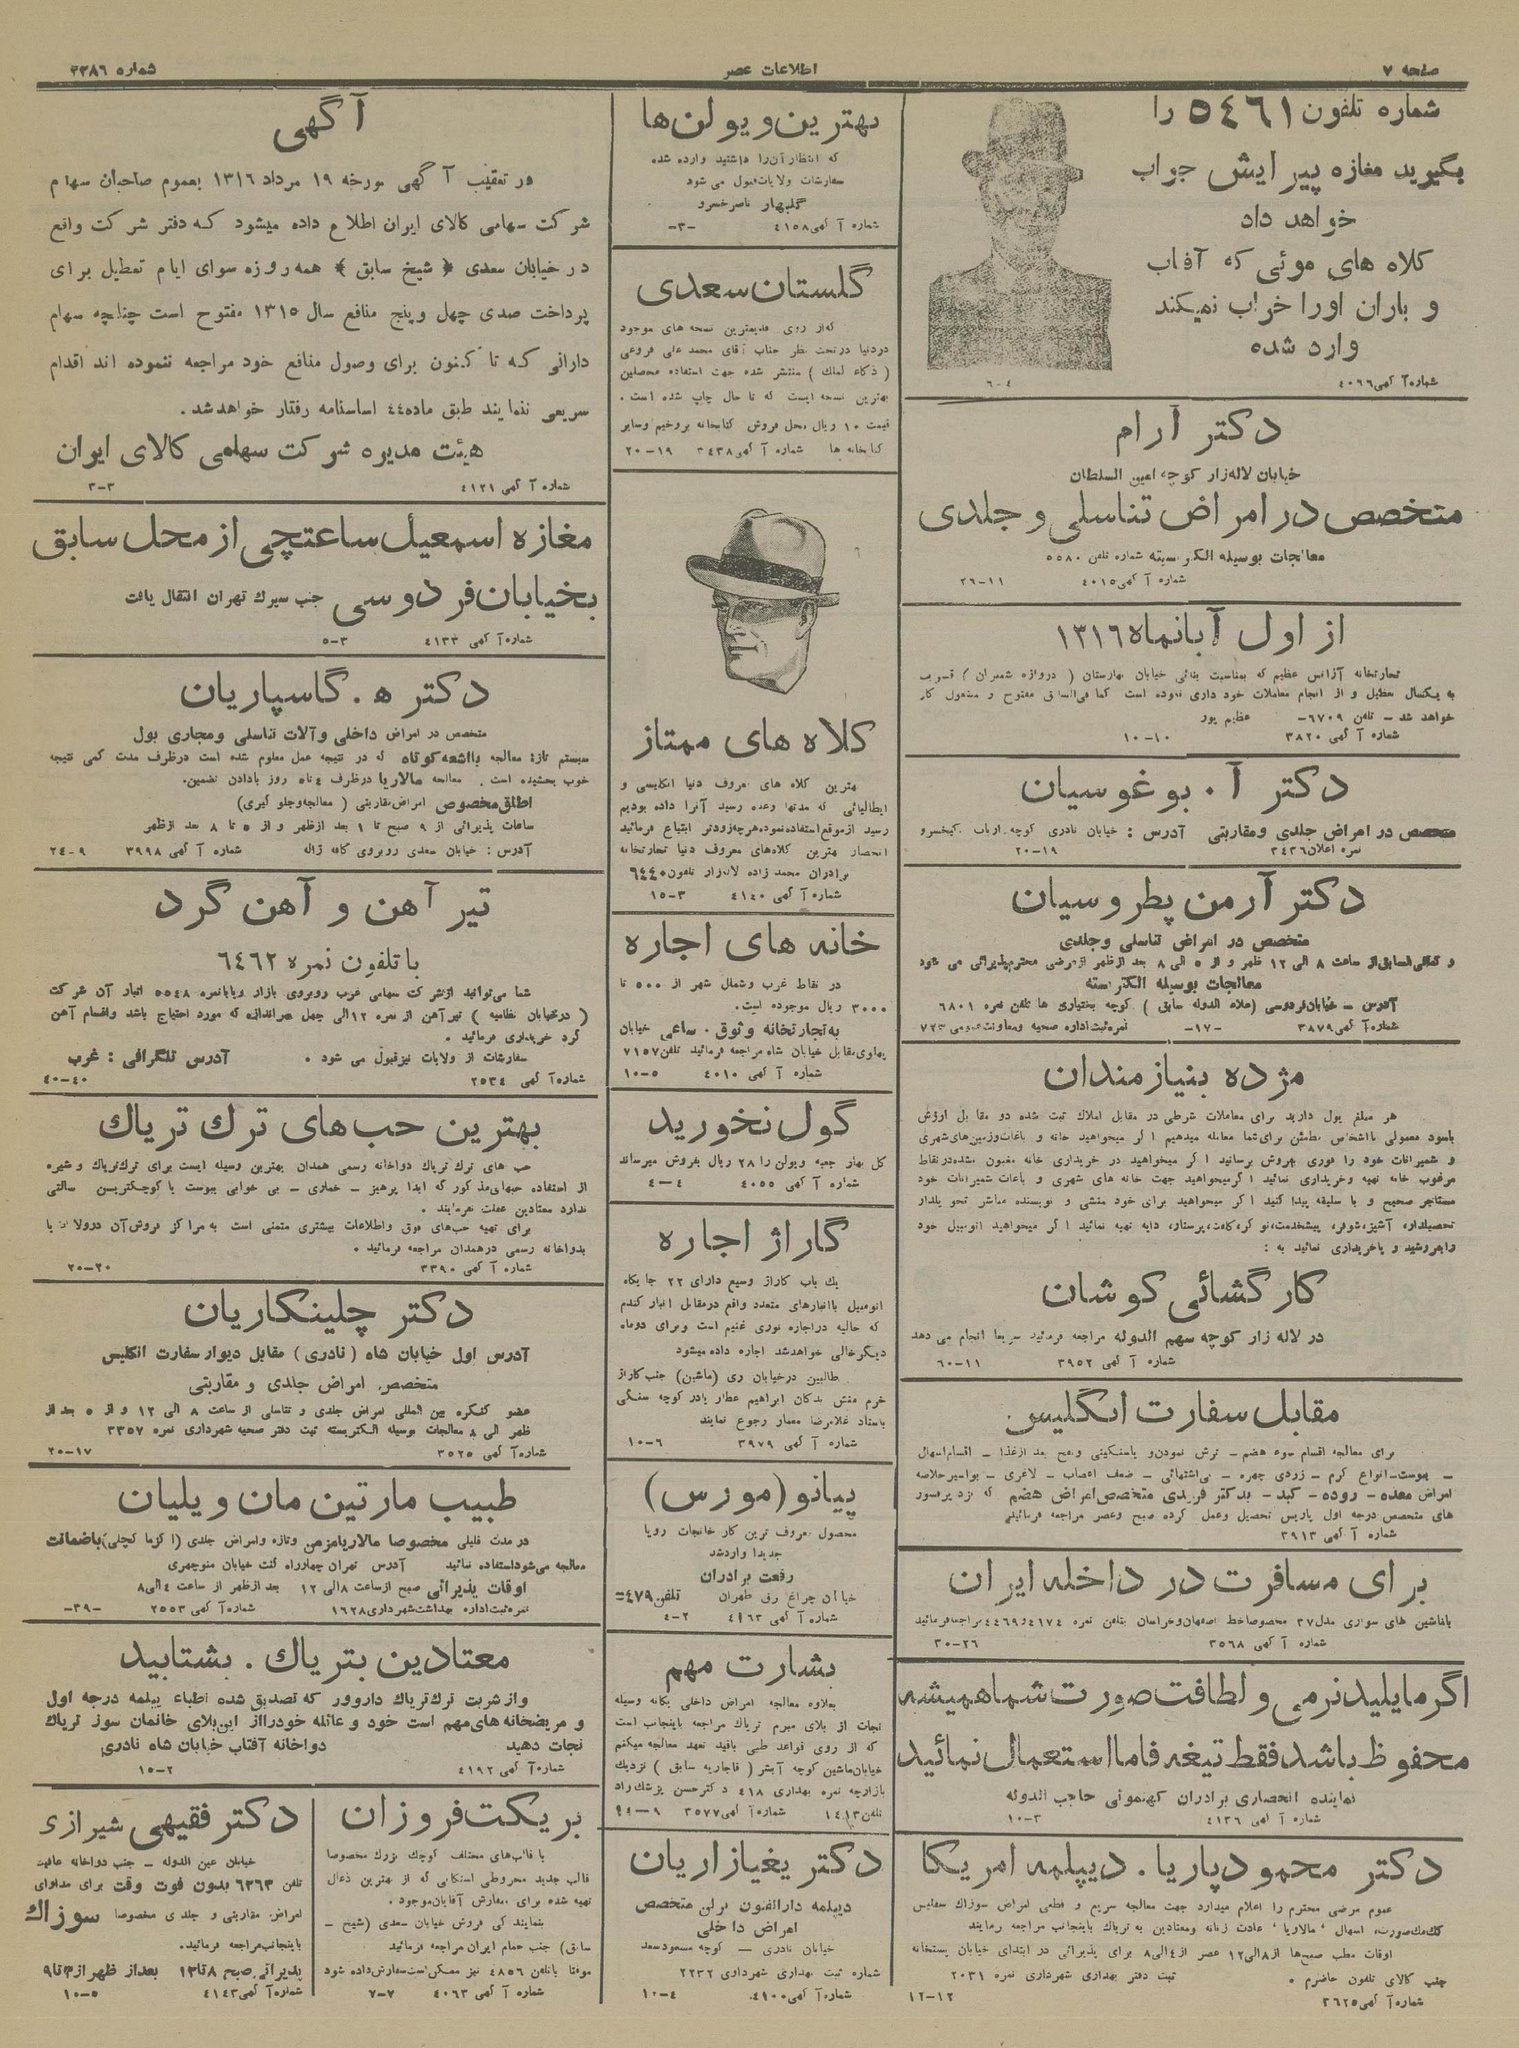 صفحه ۷
اطلاعات عصر
شماره ۳۳۸۶
شماره تلفون ۵۴۶۱ را
بگیرید مغازه پیرایش جواب
خواهد داد
کلاه های موئی که آفتاب
و باران اورا خراب نمیکند
وارد شده
شماره آگهی ۴۰۶۶
۶-۴
دکتر آرام
خیابان لاله زار کوچه امین السلطان
متخصص در امراض تناسلی و جلدی
معالجات بوسیله الکتریسیته شماره تلفن ۵۵۸۰
شماره آ گهی ۴۰۱۵
۲۶-۱۱
از اول آبانماه ۱۳۱۶
تجارتخانه آژانس عظیم که بمناسبت بنائی خیابان بهارستان ( دروازه شمیران ) قریب
به یکسال تعطیل و از انجام معاملات خود داری نموده است کما فی السابق مفتوح و مشغول کار
خواهد شد - تلفن ۶۷۰۹- عظیم پور
شماره آ گهی ۳۸۲۰
۱۰-۱۰
دکتر آ . بوغوسیان
متخصص در امراض جلدی ومقاربتی آدرس : خیابان نادری کوچه ارباب کیخسرو
نمره اعلان ۳۴۳۶
۲۰-۱۹
دکتر آرمن پطروسیان
متخصص در امراض تناسلی وجلدی
کمافی السابق از ساعت ۸ الی ۱۲ ظهر و از ۵ الی ۸ بعد ازظهر ازمرضی محترم پذیرائی می شود
معالجات بوسیله الکتریسته
آدرس - خیابان فردوسی (علاء الدوله سابق ) کوچه بختیاری ها تلفن نمره ۶۸۰۱
شماره آ گهی ۳۸۷۹
-۱۷-
نمره ثبت اداره صحیه ومعاونت عمومی ۷۲۳
مژده بنیازمندان
هر مبلغ پول دارید برای معاملات شرطی در مقابل املاک ثبت شده دو مقابل ارزش
باسود معمولی بااشخاص مطمئن برای شما معامله میدهیم اگر میخواهید خانه و باغات وزمین های شهری
و شمیرانات خود را فوری بفروش برسانید اگر میخواهید در خریداری خانه مغبون نشده درنقاط
مرغوب خانه تهیه وخریداری نمائید اگرمیخواهید جهت خانه های شهری و باغات شمیرانات خود
مستاجر صحیح و با سلیقه پیدا کنید اگر میخواهید برای خود منشی و نویسنده مباشر تحویلدار
تحصیلدار، آشپز، شوفر، پیشخدمت، نوکر، کلفت، پرستار، دایه تهیه نمائید اگر میخواهید اتومبیل خود
رابفروشید و یاخریداری نمائید به :
کارگشائی کوشان
در لاله زار کوچه سهم الدوله مراجعه فرمائید سریعا انجام می دهد
شماره آ گهی ۳۹۵۲
۶۰-۱۱
مقابل سفارت انگلیس
برای معالجه اقسام سوء هضم - ترش نمودن و یاسنگینی ونفخ بعد ازغذا - اقسام اسهال
- یبوست - انواع کرم - زردی چهره - بی اشتهائی - ضعف اعصاب - لاغری - بواسیر خلاصه
امراض معده - روده - کبد - بدکتر فریدی متخصص امراض هضم که نزد پرفسور
های متخصص درجه اول پاریس تحصیل وعمل کرده صبح وعصر مراجعه فرمائید
شماره آ گهی ۳۹۱۳
برای مسافرت در داخله ایران
باماشین های سواری مدل ۳۷ مخصوصا خط اصفهان وخراسان بتلفن نمره ۴۱۷۴ و ۴۴۶۹ مراجعه فرمائید
شماره آ گهی ۳۵۶۸
۳۰-۲۶
اگر مایلید نرمی و لطافت صورت شما همیشه
محفوظ باشد فقط تیغه فاما استعمال نمائید
نماینده انحصاری برادران کهنموئی حاجب الدوله
شماره آ گهی ۴۱۳۶
۱۰-۳
دکتر محمود پاریا . دیپلمه امریکا
عموم مرضی محترم را اعلام میدارد جهت معالجه سریع و قطعی امراض سوزاک سفلیس
کک مک صورت، اسهال ‘ مالاریا ‘ عادت زنانه ومعتادین به تریاک باینجانب مراجعه فرمایند
اوقات مطب صبحها از ۸ الی ۱۲ عصر از ۴ الی ۸ برای پذیرائی در ابتدای خیابان پستخانه
جنب کالای تلفون حاضرم . ثبت دفتر بهداری شهرداری نمره ۲۰۳۱
شماره آ گهی ۳۶۲۵
۱۲-۱۲
بهترین ویولن ها
که انتظار آن را داشتید وارده شده
سفارشات ولایات قبول می شود
گلبهار ناصر خسرو
شماره آ گهی ۴۱۵۸
-۳-
گلستان سعدی
که از روی قدیمترین نسخه های موجود
دردنیا درتحت نظر جناب آقای محمد علی فروغی
( ذکاء الملک ) منتشر شده جهت استفاده محصلین
بهترین نسخه ایست که تا حال چاپ شده است .
قیمت ۱۰ ریال محل فروش کتابخانه بروخیم وسایر
کتابخانه ها شماره آ گهی ۳۴۳۸ ۲۰-۱۹
کلاه های ممتاز
بهترین کلاه های معروف دنیا انگلیسی و
ایطالیائی که مدتها وعده رسید آنرا داده بودیم
رسید ازموقع استفاده نموده هرچه زودتر ابتیاع فرمائید
انحصار بهترین کلاه های معروف دنیا تجارتخانه
برادران محمد زاده لاله زار تلفون ۶۴۴۰
شماره آ گهی ۴۱۴۰
۱۵-۳
خانه های اجاره
در نقاط غرب وشمال شهر از ۵۰۰ تا
۳۰۰۰ ریال موجوده است.
به تجارتخانه وثوق . ساعی خیابان
پهلوی مقابل خیابان شاه مراجعه فرمائید تلفن ۷۱۵۷
شماره آ گهی ۴۰۱۰
۱۰-۵
گول نخورید
گل بهار جعبه ویولن را ۲۸ ریال بفروش میرساند
شماره آ گهی ۴۰۵۵
۴-۴
گاراژ اجاره
یک باب گاراژ وسیع دارای ۲۲ جایگاه
اتومبیل باانبارهای متعدد واقع درمقابل انبار گندم
که حالیه در اجاره نوری غنیم است وبرای دوماه
دیگر خالی خواهد شد اجاره داده میشود
طالبین درخیابان ری (ماشین) جنب گاراژ
خرم منش بدکان ابراهیم عطار یادر کوچه سنگی
باستاد غلامرضا معمار رجوع نمایند
شماره آ گهی ۳۹۷۹
۱۰-۶
پیانو (مورس)
محصول معروف ترین کار خانجات روپا
جدیدا واردشد
رفعت برادران
خیابان چراغ برق طهران تلفن ۴۷۹=
شماره آ گهی ۴۱۶۳
۲-۴
بشارت مهم
بعلاوه معالجه امراض داخلی یگانه وسیله
نجات از بلای مبرم تریاک مراجعه باینجانب است
که از روی قواعد طبی باقید تعهد معالجه میکنم
خیابان ماشین کوچه آبشر ( قاجاریه سابق ) نزدیک
بازارچه نمره بهداری ۴۱۸ دکترحسن پزشک راد
تلفن ۱۴۱۳ شماره آ گهی ۳۵۷۷ ۹-۹۴
دکتر یغیازاریان
دیپلمه دارالفنون برلن متخصص
امراض داخلی
خیابان نادری - کوچه مسعود سعد
شماره ثبت بهداری شهرداری ۲۲۳۲
شماره آ گهی ۴۱۰۰
۱۰-۴
آگهی
در تعقیب آ گهی مورخه ۱۹ مرداد ۱۳۱۶ بعموم صاحبان سهام
شرکت سهامی کالای ایران اطلاع داده میشود که دفتر شرکت واقع
در خیابان سعدی ﴿ شیخ سابق ﴾ همه روزه سوای ایام تعطیل برای
پرداخت صدی چهل وپنج منافع سال ۱۳۱۵ مفتوح است چنانچه سهام
دارانی که تا کنون برای وصول منافع خود مراجعه ننموده اند اقدام
سریعی ننمایند طبق ماده ۴۴ اساسنامه رفتار خواهد شد.
هیئت مدیره شرکت سهامی کالای ایران
شماره آ گهی ۴۱۲۱
۳-۳
مغازه اسمعیل ساعتچی از محل سابق
بخیابان فردوسی جنب سیرک تهران انتقال یافت
شماره آ گهی ۴۱۳۳
۵-۳
دکتر ه . گاسپاریان
متخصص در امراض داخلی وآلات تناسلی ومجاری بول
سیستم تازه معالجه بااشعه کوتاه که در نتیجه عمل معلوم شده است درظرف مدت کمی نتیجه
خوب بخشیده است . معالجه مالاریا درظرف ۴ تا ۵ روز بادادن تضمین.
اطاق مخصوص امراض مقاربتی ( معالجه وجلو گیری)
ساعات پذیرائی از ۹ صبح تا ۱ بعد ازظهر و از ۵ تا ۸ بعد ازظهر
آدرس : خیابان سعدی روبروی کافه ژاله شماره آ گهی ۳۹۹۸ ۲۴-۹
تیر آهن و آهن گرد
با تلفون نمره ۶۴۶۲
شما می توانید ازشرکت سهامی غرب روبروی بازار ویابانمره ۵۵۴۸ انبار آن شرکت
( درخیابان نظامیه ) تیر آهن از نمره ۱۲ الی چهل هراندازه که مورد احتیاج باشد واقسام آهن
گرد خریداری فرمائید .
سفارشات از ولایات نیز قبول می شود . آدرس تلگرافی : غرب
شماره آ گهی ۲۵۳۴
۴۰-۴۰
بهترین حب های ترک تریاک
حب های ترک تریاک دواخانه رسمی همدان بهترین وسیله ایست برای ترک تریاک و شیره
از استفاده حبهای مذکور که ابدا پرهیز - خماری - بی خوابی یبوست یا کوچکترین کسالتی
ندارد معتادین غفلت نفرمایند .
برای تهیه حب های فوق واطلاعات بیشتری متمنی است به مراکز فروش آن درولایات یا
بدواخانه رسمی درهمدان مراجعه فرمائید .
شماره آ گهی ۳۳۹۰
۲۰-۲۰
دکتر چلینگاریان
آدرس اول خیابان شاه (نادری) مقابل دیوار سفارت انگلیس
متخصص امراض جلدی و مقاربتی
عضو کنگره بین المللی امراض جلدی و تناسلی از ساعت ۸ الی ۱۲ و از ۵ بعد از
ظهر الی ۸ معالجات بوسیله الکتریسته ثبت دفتر صحیه شهرداری نمره ۳۳۵۷
شماره آ گهی ۳۵۲۵
۲۰-۱۷
طبیب مارتین مانویلیان
در مدت قلیلی مخصوصا مالاریا مزمن وتازه وامراض جلدی (اکزما کچلی) باضمانت
معالجه می شود استفاده نمائید آدرس تهران چهارراه کنت خیابان منوچهری
اوقات پذیرائی صبح ازساعت ۸ الی ۱۲ بعد ازظهر از ساعت ۴ الی ۸
نمره ثبت اداره بهداشت شهرداری ۱۶۲۸ شماره آ گهی ۲۵۵۳ -۳۹-
معتادین بتریاک . بشتابید
و از شربت ترک تریاک داروور که تصدیق شده اطباء دیپلمه درجه اول
و مریضخانه های مهم است خود و عائله خود را از این بلای خانمان سوز تریاک
نجات دهید دواخانه آفتاب خیابان شاه نادری
شماره آ گهی ۴۱۹۲
۱۵-۲
بریکت فروزان
با قالب های مختلف کوچک بزرگ مخصوصا
قالب جدید مخروطی استکانی که از بهترین ذغال
تهیه شده برای سفارش آقایان موجود .
بنمایندگی فروش خیابان سعدی (شیخ -
سابق) جنب حمام ایران مراجعه فرمائید
موقتا باتلفن ۴۸۵۶ نیز ممکن است سفارش داده شود
شماره آ گهی ۴۰۶۳
۷-۷
دکتر فقیهی شیرازی
خیابان عین الدوله - جنب دواخانه عافیت
تلفن ۶۲۶۳ بدون فوت وقت برای مداوای
امراض مقاربتی و جلدی مخصوصا سوزاک
باینجانب مراجعه فرمائید.
پذیرائی صبح ۸ تا ۱۲ بعد از ظهر از ۳ تا ۹
شماره آ گهی ۴۱۴۳
۱۰-۵